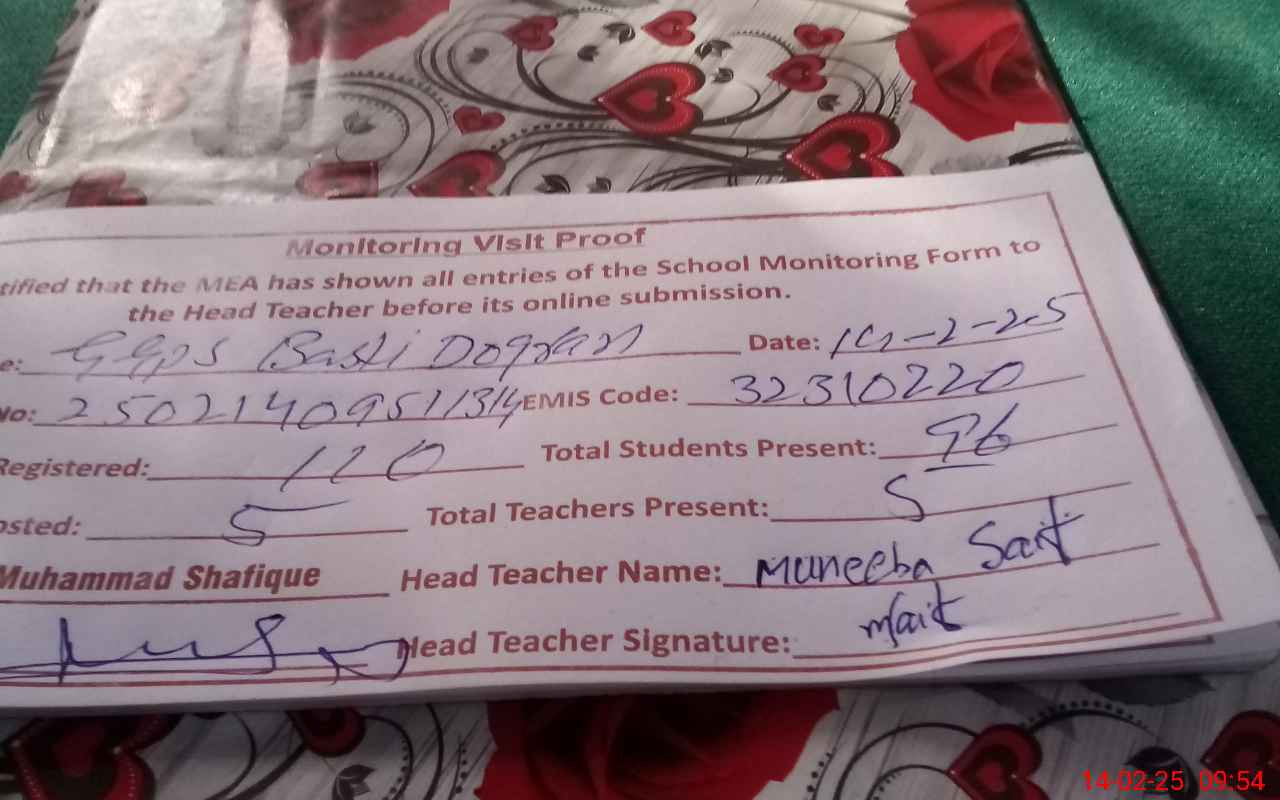 Monitoring Visit Proof
tified that the MEA has shown all entries of the School Monitoring Form to
the Head Teacher before its online submission.
e: GGPS Basti Dogran Date: 14-2-25
No: 250214095111314 EMIS Code: 32310220
Registered: 120 Total Students Present: 96
osted: 5 Total Teachers Present: 5
Muhammad Shafique Head Teacher Name: Muneeba
Head Teacher Signature:
14-02-25 09:54